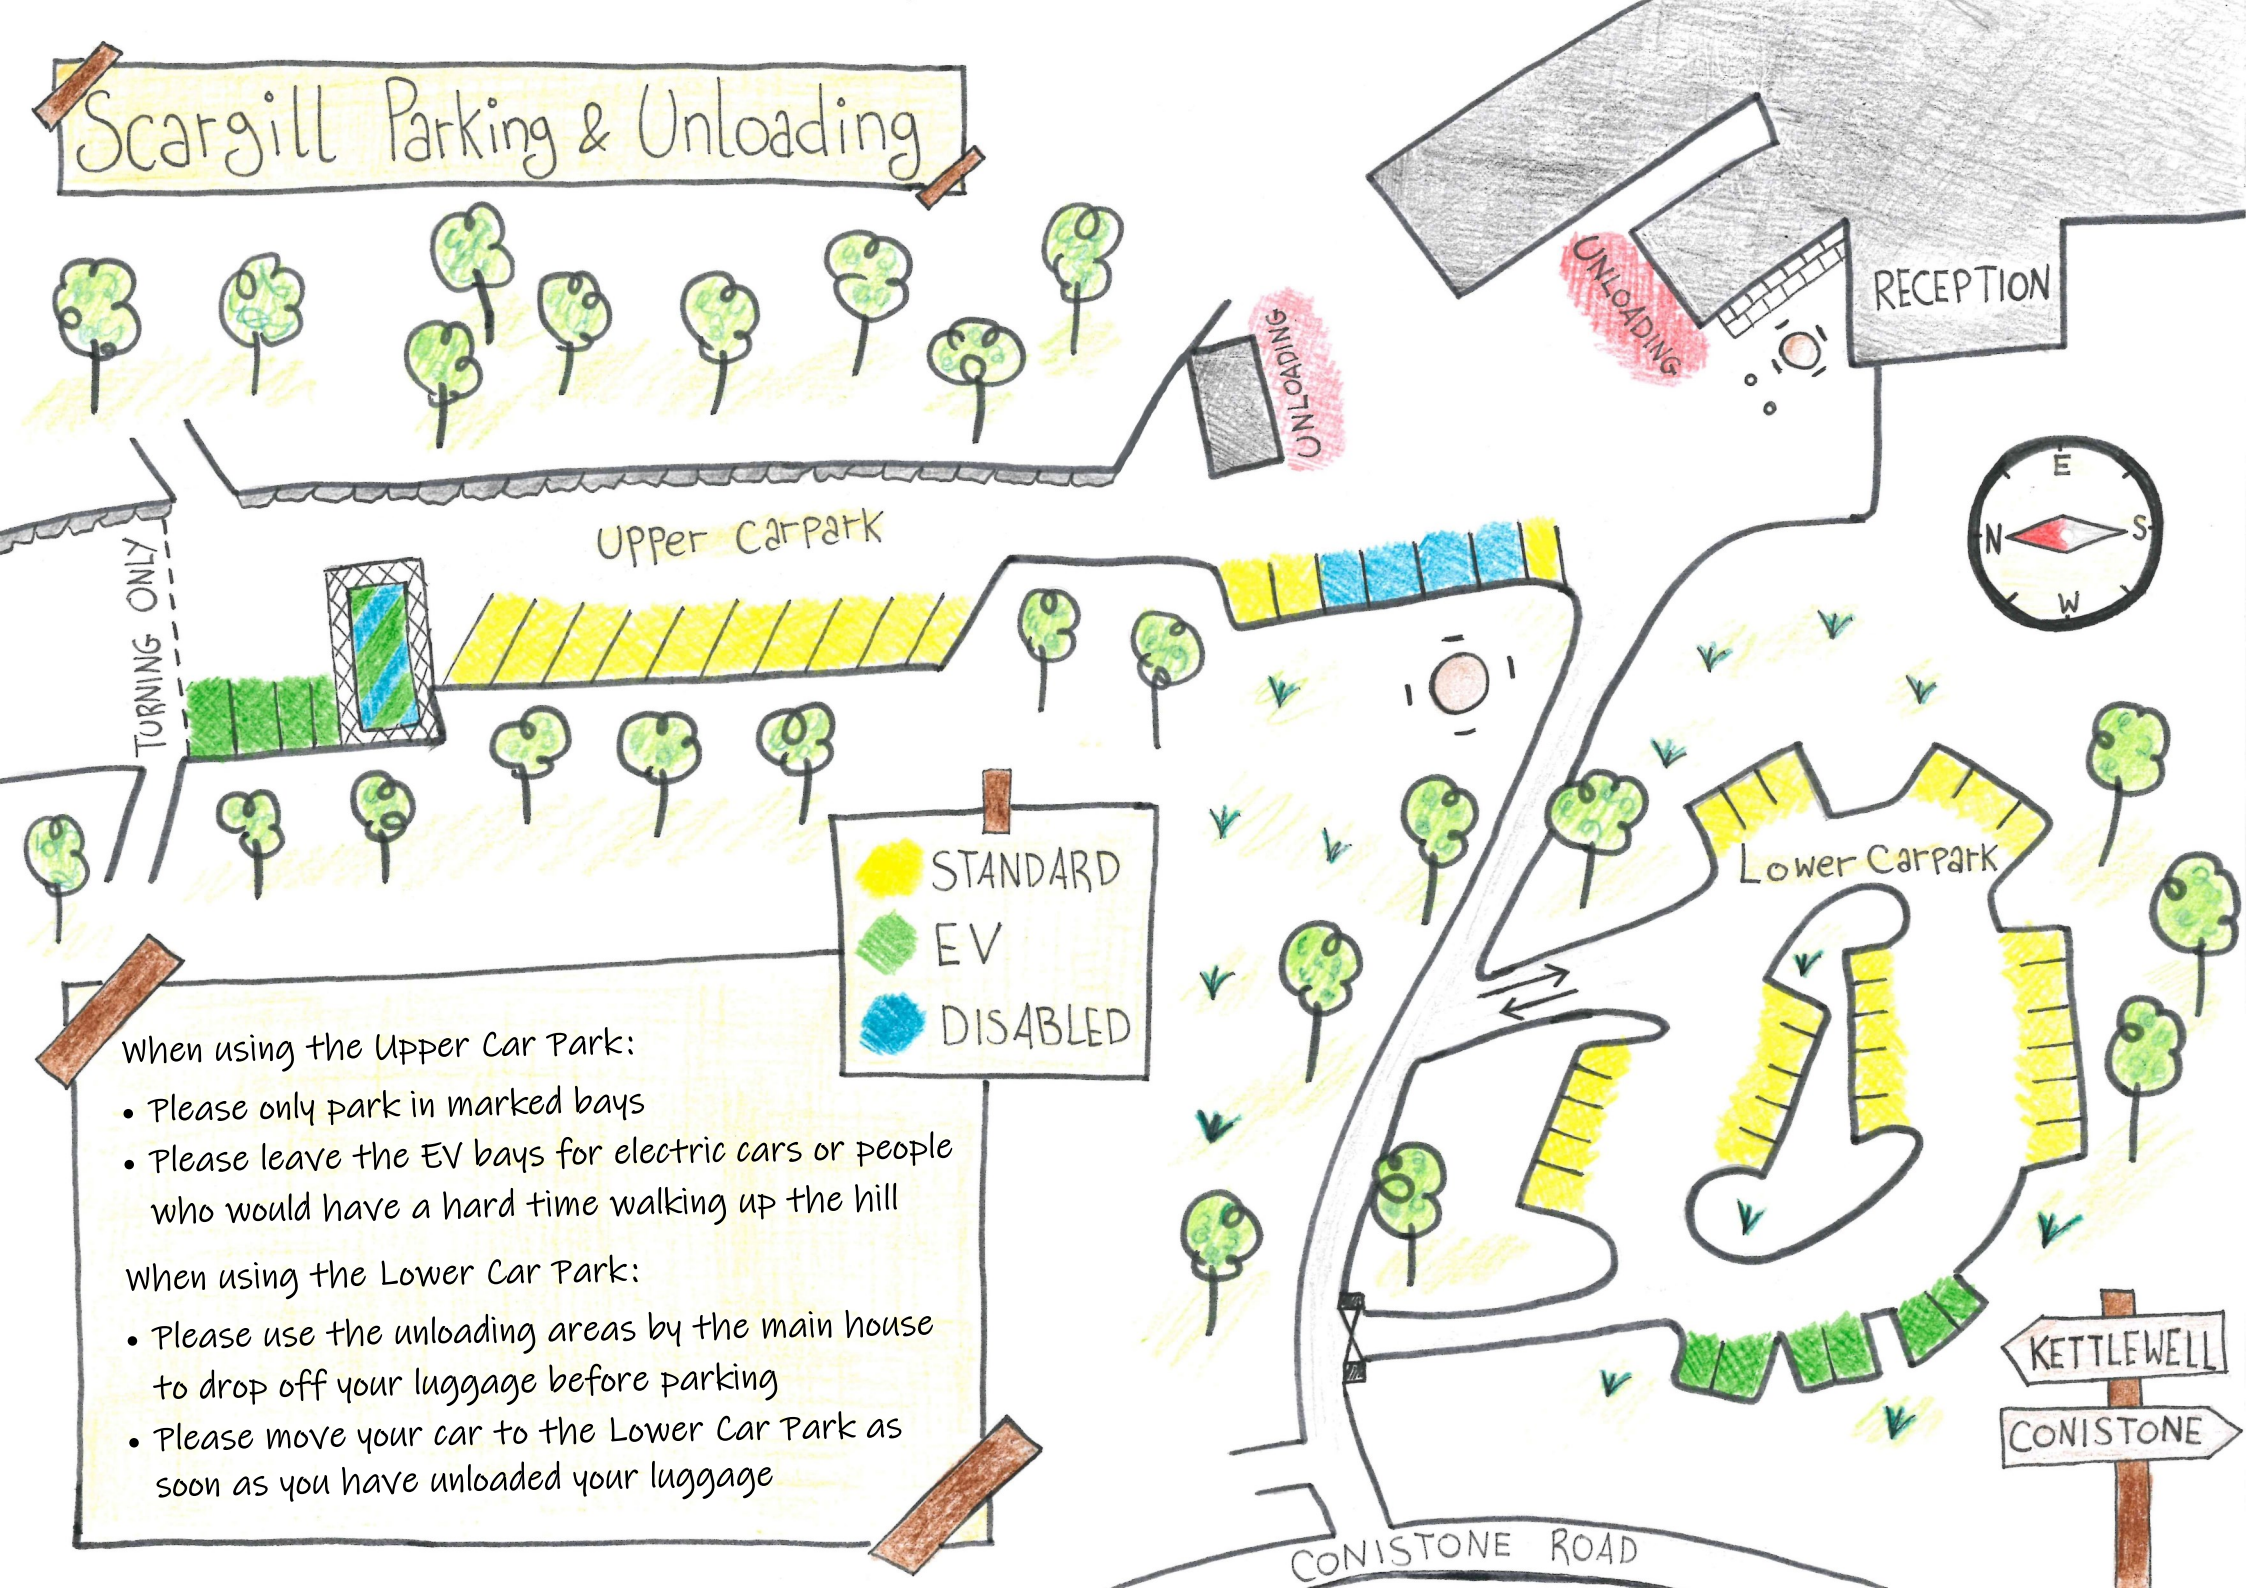 Scargill Parking & Unloading
UNLOADING
UNLOADING
RECEPTION
E
N
S
W
Upper Carpark
TURNING ONLY
Lower Carpark
STANDARD
EV
DISABLED
When using the Upper Car Park:
• Please only park in marked bays
• Please leave the EV bays for electric cars or people
who would have a hard time walking up the hill
When using the Lower Car Park:
• Please use the unloading areas by the main house
to drop off your luggage before parking
• Please move your car to the Lower Car Park as
soon as you have unloaded your luggage
KETTLEWELL
CONISTONE
CONISTONE ROAD